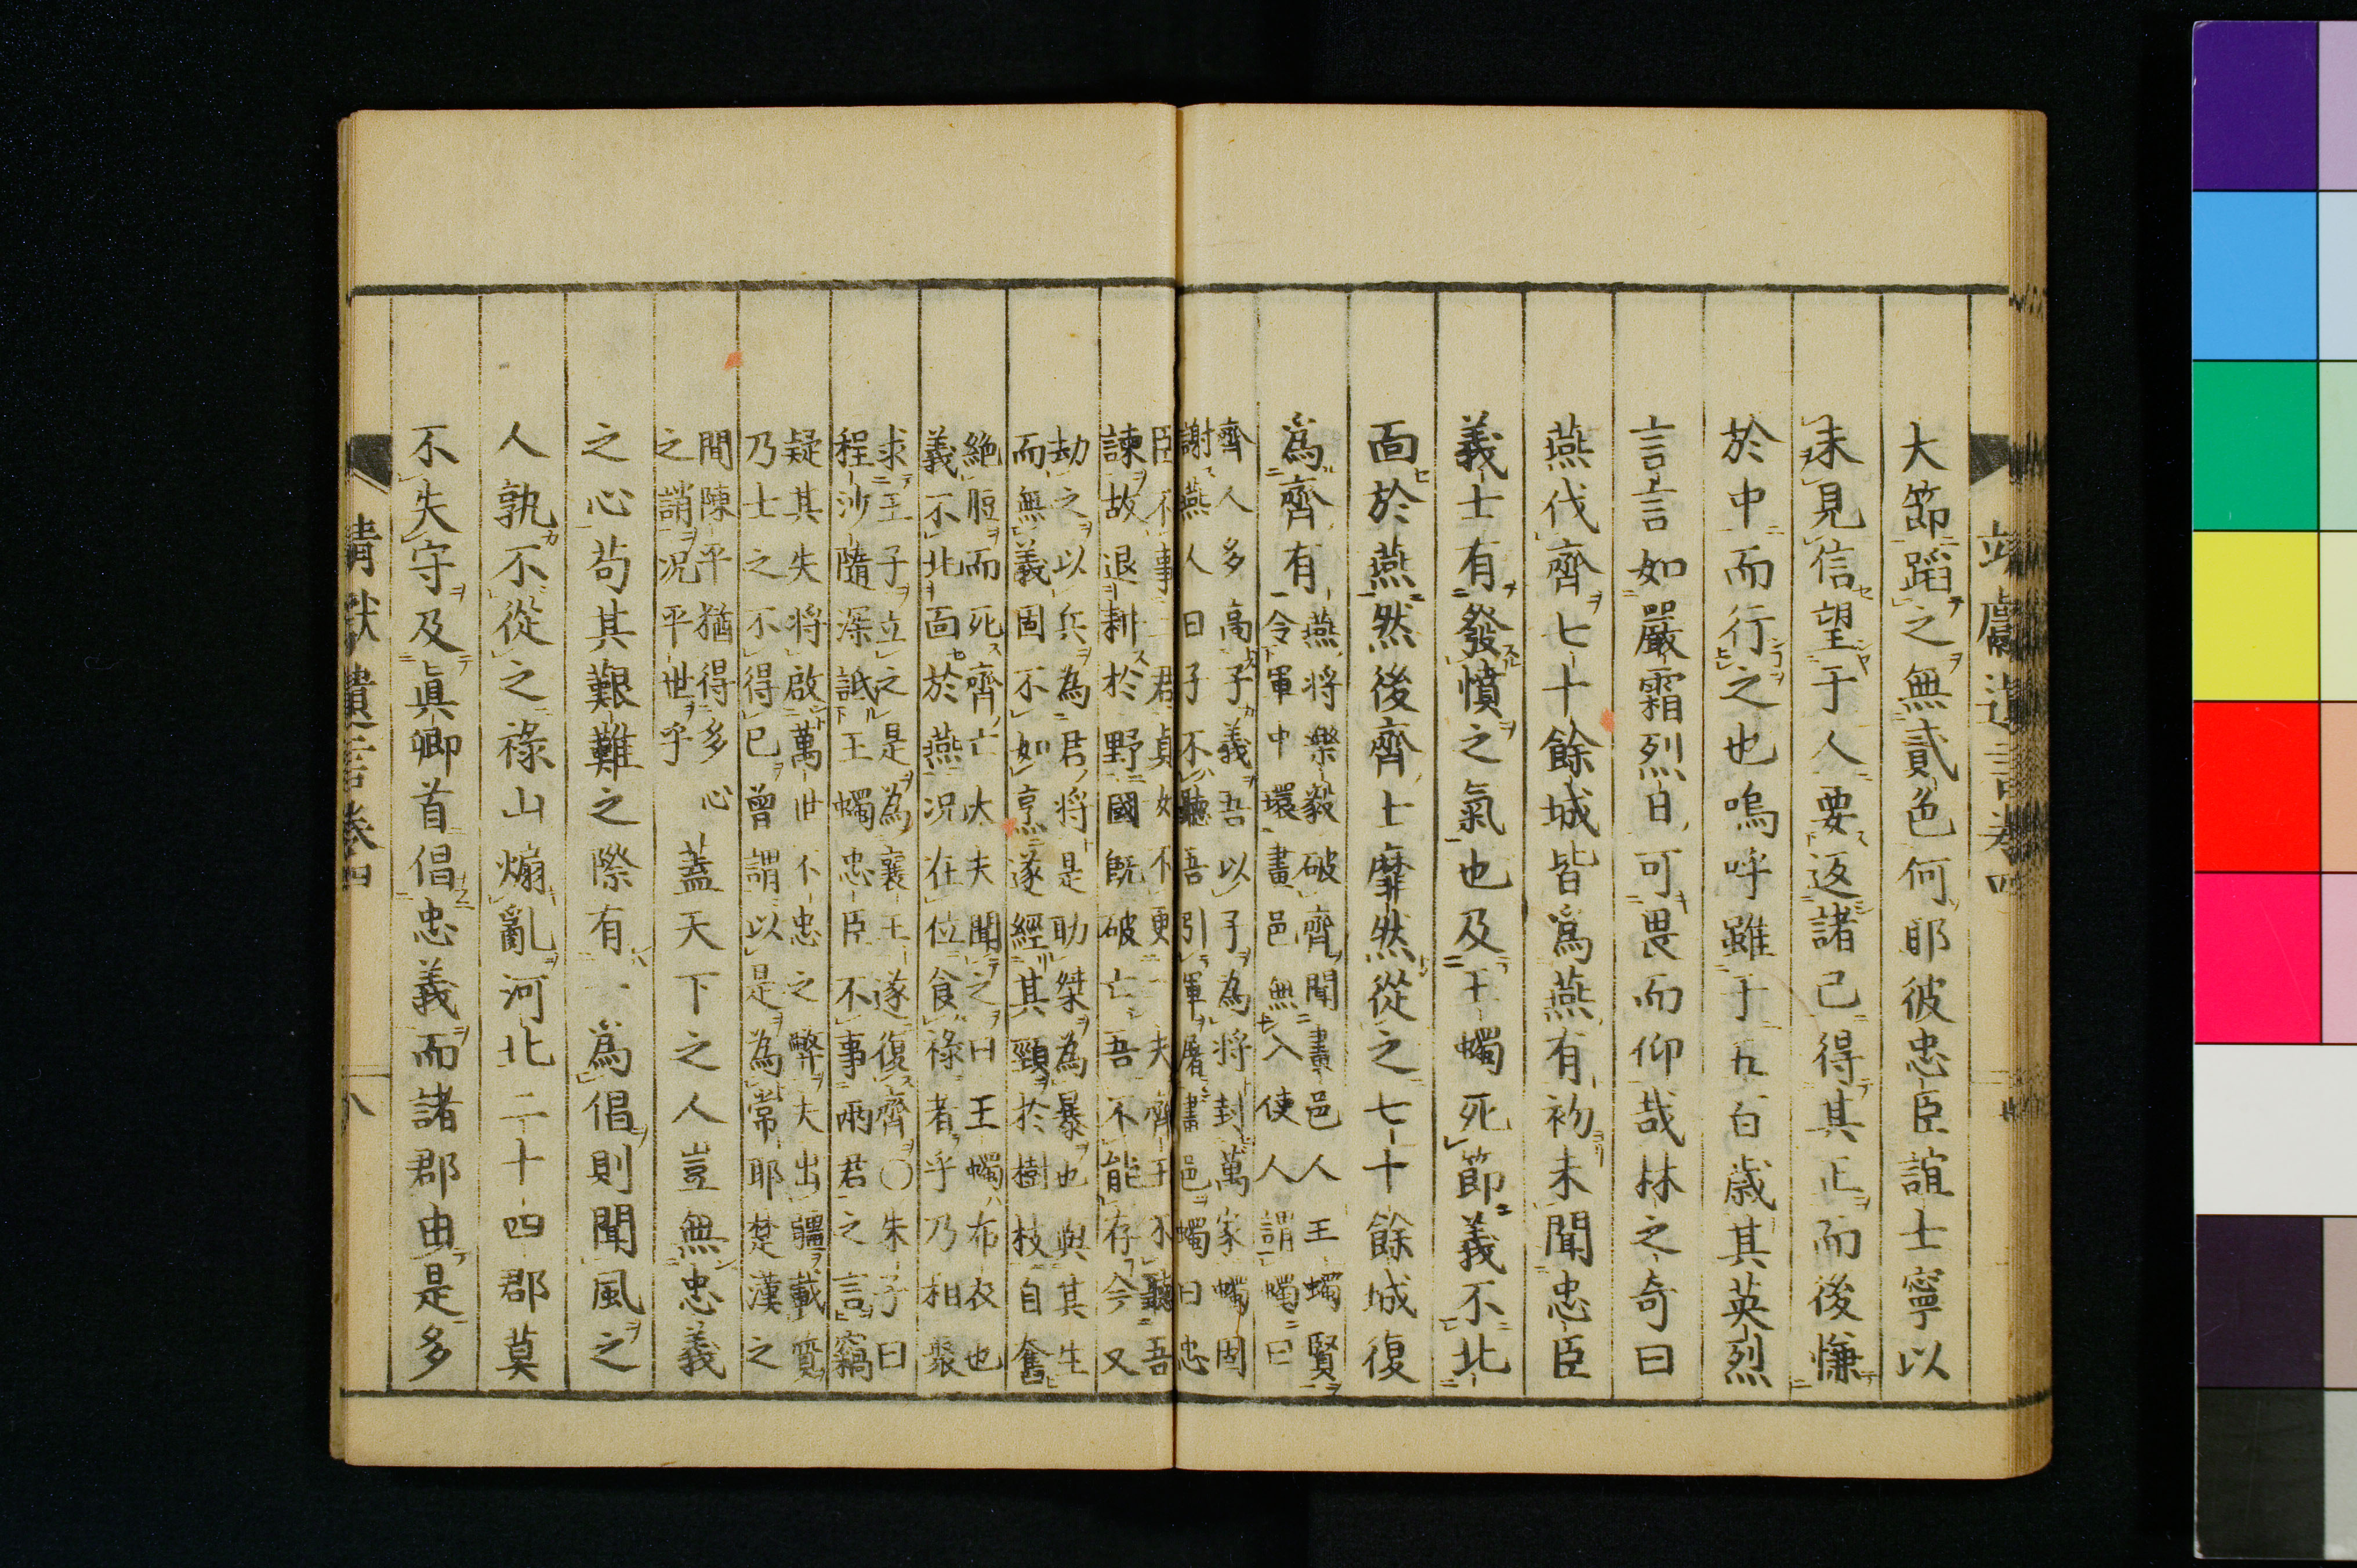 大節蹈之無貳色何耶彼忠臣誼士寧以
未見信望于人要返諸己得其正而後慊
於中而行之也嗚呼雖于五百歳其英烈
言言如嚴霜烈日可畏而仰哉林之奇曰
燕伐齊七十餘城皆爲燕有初未聞忠臣
義士有發憤之氣也及王蠋死節義不北
面於燕然後齊士靡然從之七十餘城復
爲齊有
燕將樂毅破齊聞畫邑人王蠋賢
令軍中環畫邑無入使人謂蠋曰
齊人多高子義吾以子為將封萬家蠋固
謝燕人曰子不聽吾引軍屠畫邑蠋曰忠
臣不事二君貞女不更二夫齊王不聽吾
諫故退耕於野國既破亡吾不能存今又
劫之以兵為君將是助桀為暴也與其生
而無義固不如烹遂經其頸於樹枝自奮
絶脰而死齊亡大夫聞之曰王蠋布衣也
義不北面於燕况在位食祿者乎乃相聚
求王子立之是為襄王遂復齊○朱子曰
程沙隨深詆王蠋忠臣不事兩君之言竊
疑其失將啟萬世不忠之弊夫出疆載質
乃士之不得已曽謂以是為常耶楚漢之
間陳平猶得多心
之誚况平世乎
蓋天下之人豈無忠義
之心苟其艱難之際有一爲倡則聞風之
人孰不從之祿山煽亂河北二十四郡莫
不失守及眞卿首倡忠義而諸郡由是多
靖獻遺言卷四
八